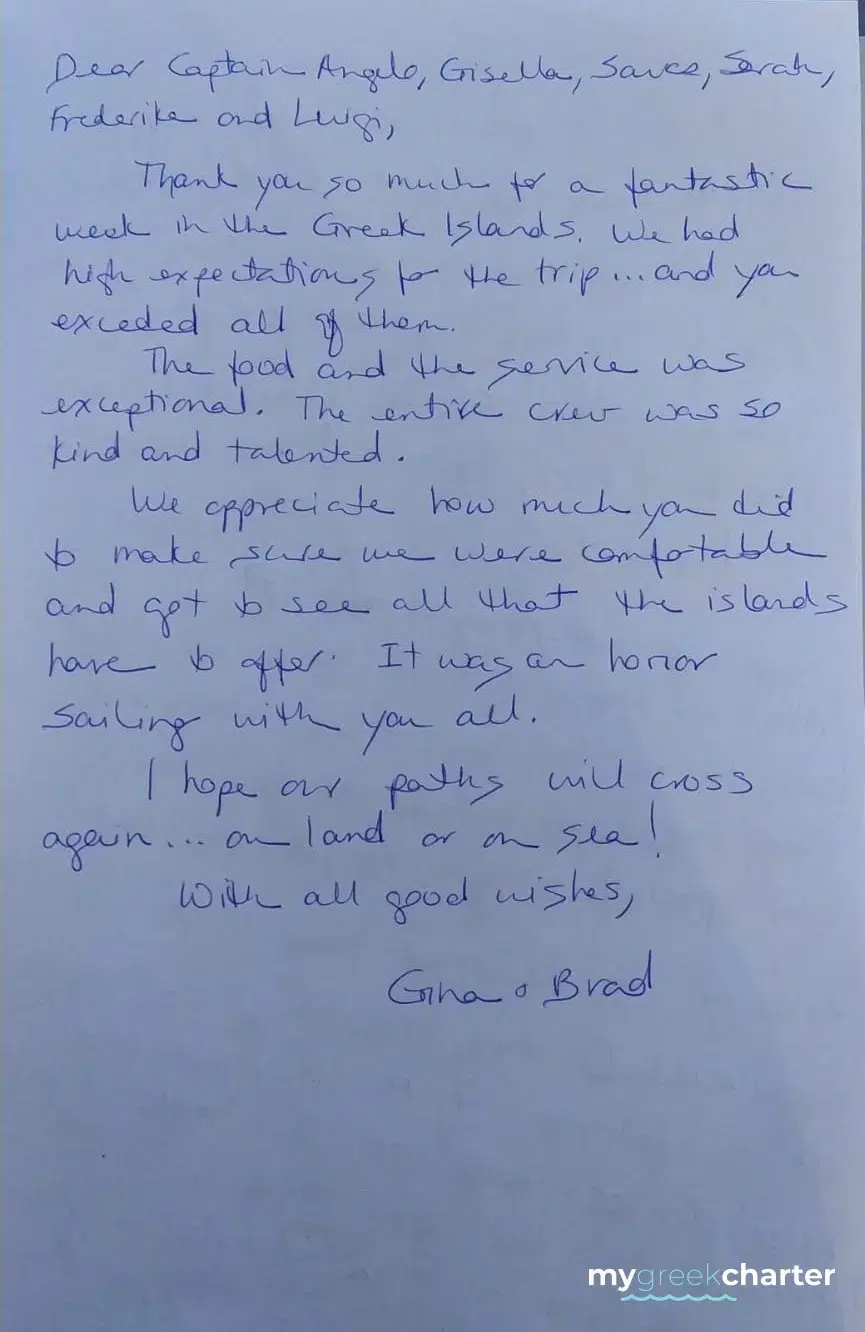 Dear Captain Angelo, Gisella, Sarah,
Frederike and Luigi,
Thank you so much for a fantastic
week in the Greek Islands. We had
high expectations for the trip... and you
exceded all of them.
The food and the service was
exceptional. The entire crew was so
kind and talented.
We appreciate how much you did
to make sure we were comfortable
and got to see all that the islands
have to offer. It was an honor
sailing with you all.
I hope our paths will cross
again... on land or on sea!
With all good wishes,
Gina & Brad
mygreekcharter